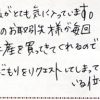 がとても気に入っています。
のお取引先様が毎回
産を買ってきてくれるので
ごもりをリクエストしてしまって
いる